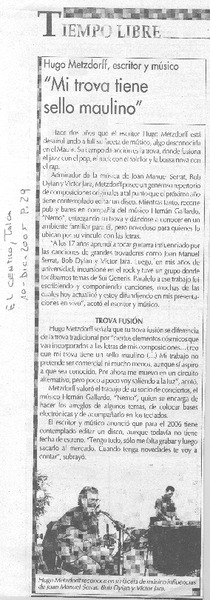 TIEMPO LIBRE
Hugo Metzdorff, escritor y músico
"Mi trova tiene
sello maulino"
Hace dos años que el escritor Hugo Metzdorff está
desarrollando a full su faceta de músico, algo desconocida
en el Maule. Su tiempo de acción es la trova, donde fusiona
el jazz con el pop, el rock con el folclor y la bossa nova con el
rap.
Admirador de la música de Joan Manuel Serrat, Bob
Dylan y Víctor Jara, Metzdorff posee un generoso repertorio
de composiciones originales al punto que el próximo año
tiene contemplado editar un disco. Mientras tanto, recorre
pub y bares en compañía del músico Hernán Gallardo,
"Nemo", entonando su trova y dándose a conocer en un
ambiente familiar para él, pero novedoso para quienes lo
ubican por su vínculo con las letras.
"A los 17 años aprendí a tocar guitarra influenciado por
las canciones de grandes trovadores como Joan Manuel
Serrat, Bob Dylan y Víctor Jara. Luego, en mis años de
universidad, incursioné en el rock y tuve un grupo donde
escribíamos temas Sui Generis. Paralelo a ese trabajo fui
escribiendo y componiendo canciones, muchas de
las cuales hoy actualizo y estoy difundiendo en mis presentaciones
en vivo", acotó el escritor y músico.
TROVA FUSIÓN
Hugo Metzdorff señala que su trova fusión se diferencia
de la trova tradicional por "ciertos elementos cósmicos que
van incorporándose a las letras de mis composiciones. (...creo
que mi trova tiene un sello maulino (...) Mi trabajo no
pretende ser comercial ni mucho menos, aunque sí aspiro
a que sea conocido. Por ahora me muevo en un circuito
alternativo, pero poco a poco voy saliendo a la luz", anotó.
Metzdorff valoró el trabajo de su socio de conciertos, el
músico Hernán Gallardo, "Nemo", quien se encarga de
hacer los arreglos de algunos temas, de colocar bases
electrónicas y de acompañarlo en los teclados.
El escritor y músico anunció que para el 2006 tiene
contemplado editar un disco, aunque todavía no tiene
fecha de estreno. "Tengo todo, sólo me falta grabar y luego
sacarlo al mercado. Cuando tenga novedades te voy a
contar", subrayó.
Hugo Metzdorff reconoce en su faceta de músico influencias
de Joan Manuel Serrat, Bob Dylan y Víctor Jara.
EL CENTRO, Talca
10-Dic-2005 P. 29